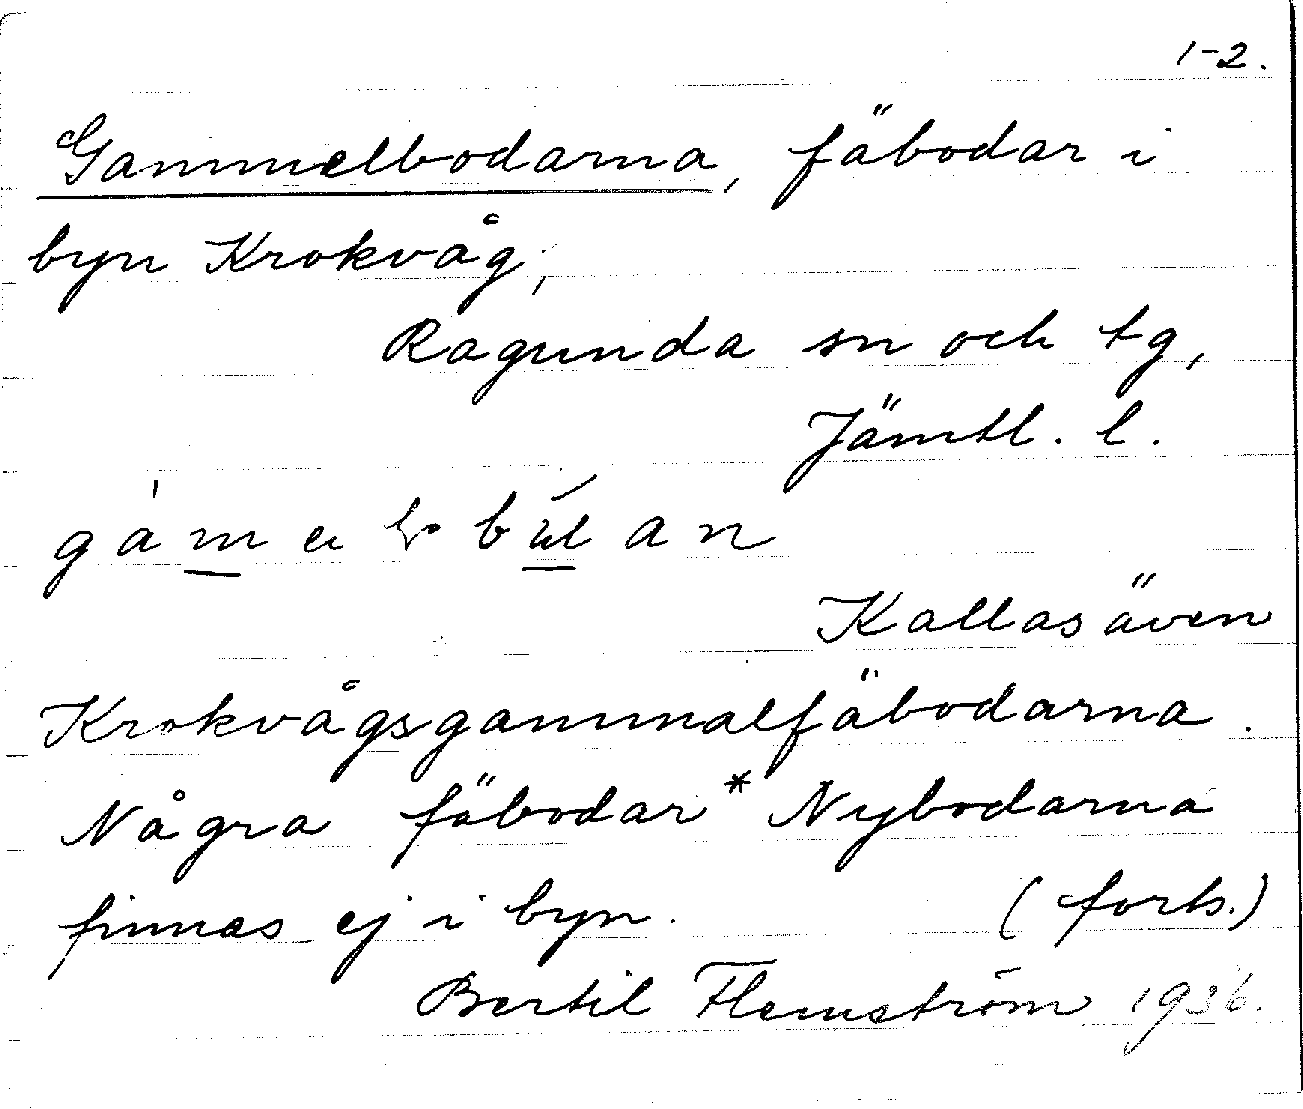 1-2.
Gammelbodarna, fäbodar i
byn Krokvåg,
Ragunda sn och tg,
Jämtl. l.
Kallas även
Krokvågsgammalfäbodarna.
Några fäbodar *Nybodarna
finnas ej i byn. (forts.)
Bertil Flemström 1936.